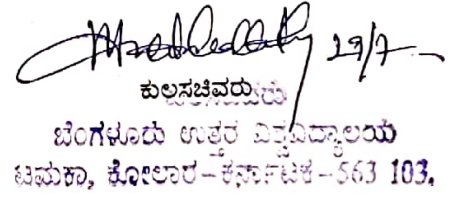 29/7
ಕುಲಸಚಿವರು
ಬೆಂಗಳೂರು ಉತ್ತರ ವಿಶ್ವವಿದ್ಯಾಲಯ
ಟಮಕಾ, ಕೋಲಾರ-ಕರ್ನಾಟಕ-563 103.